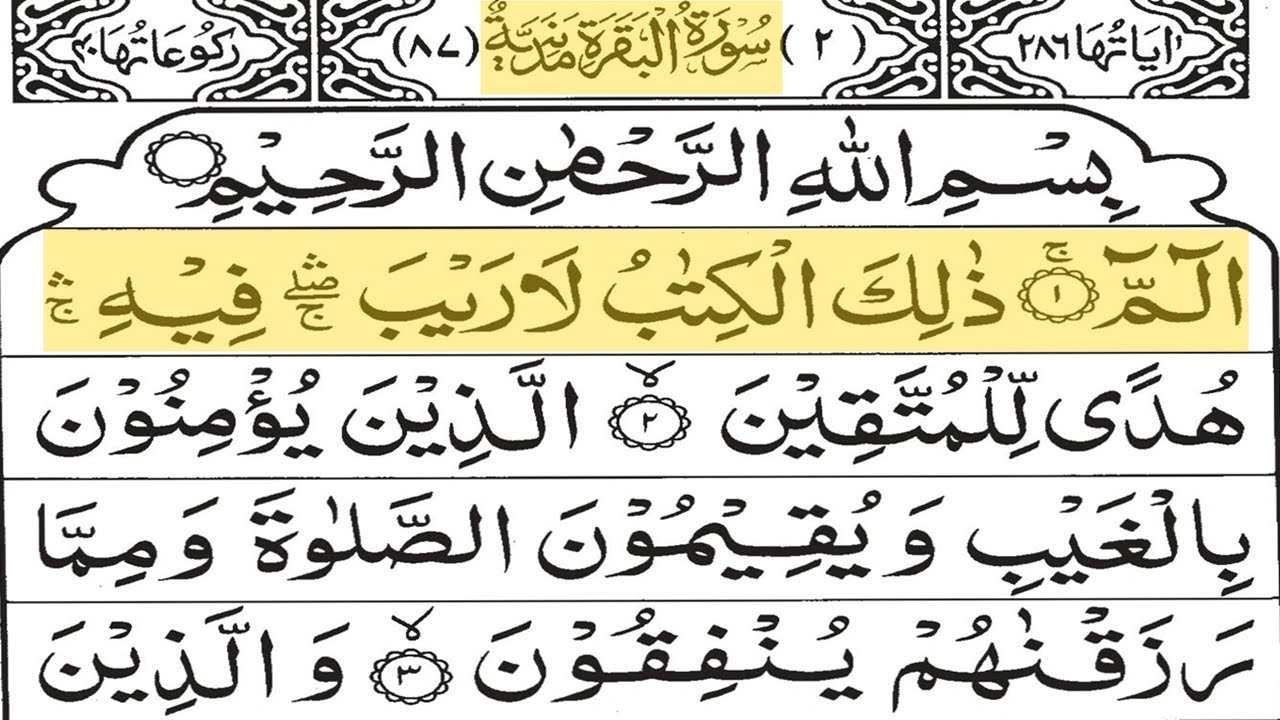 اٰیَاتُهَا ٢٨٦ (٢) سُوْرَةُ الْبَقَرَةِ مَدَنِیَّةٌ (٨٧) رُكُوْعَاتُهَا ٤٠
بِسْمِ اللّٰهِ الرَّحْمٰنِ الرَّحِیْمِ
الٓمّٓ ۚ ١ ذٰلِكَ الْكِتٰبُ لَا رَیْبَ ۛۖۚ فِیْهِ ۛۚ
هُدًی لِّلْمُتَّقِیْنَ ۙ ٢ الَّذِیْنَ یُؤْمِنُوْنَ
بِالْغَیْبِ وَ یُقِیْمُوْنَ الصَّلٰوةَ وَ مِمَّا
رَزَقْنٰهُمْ یُنْفِقُوْنَ ۙ ٣ وَ الَّذِیْنَ